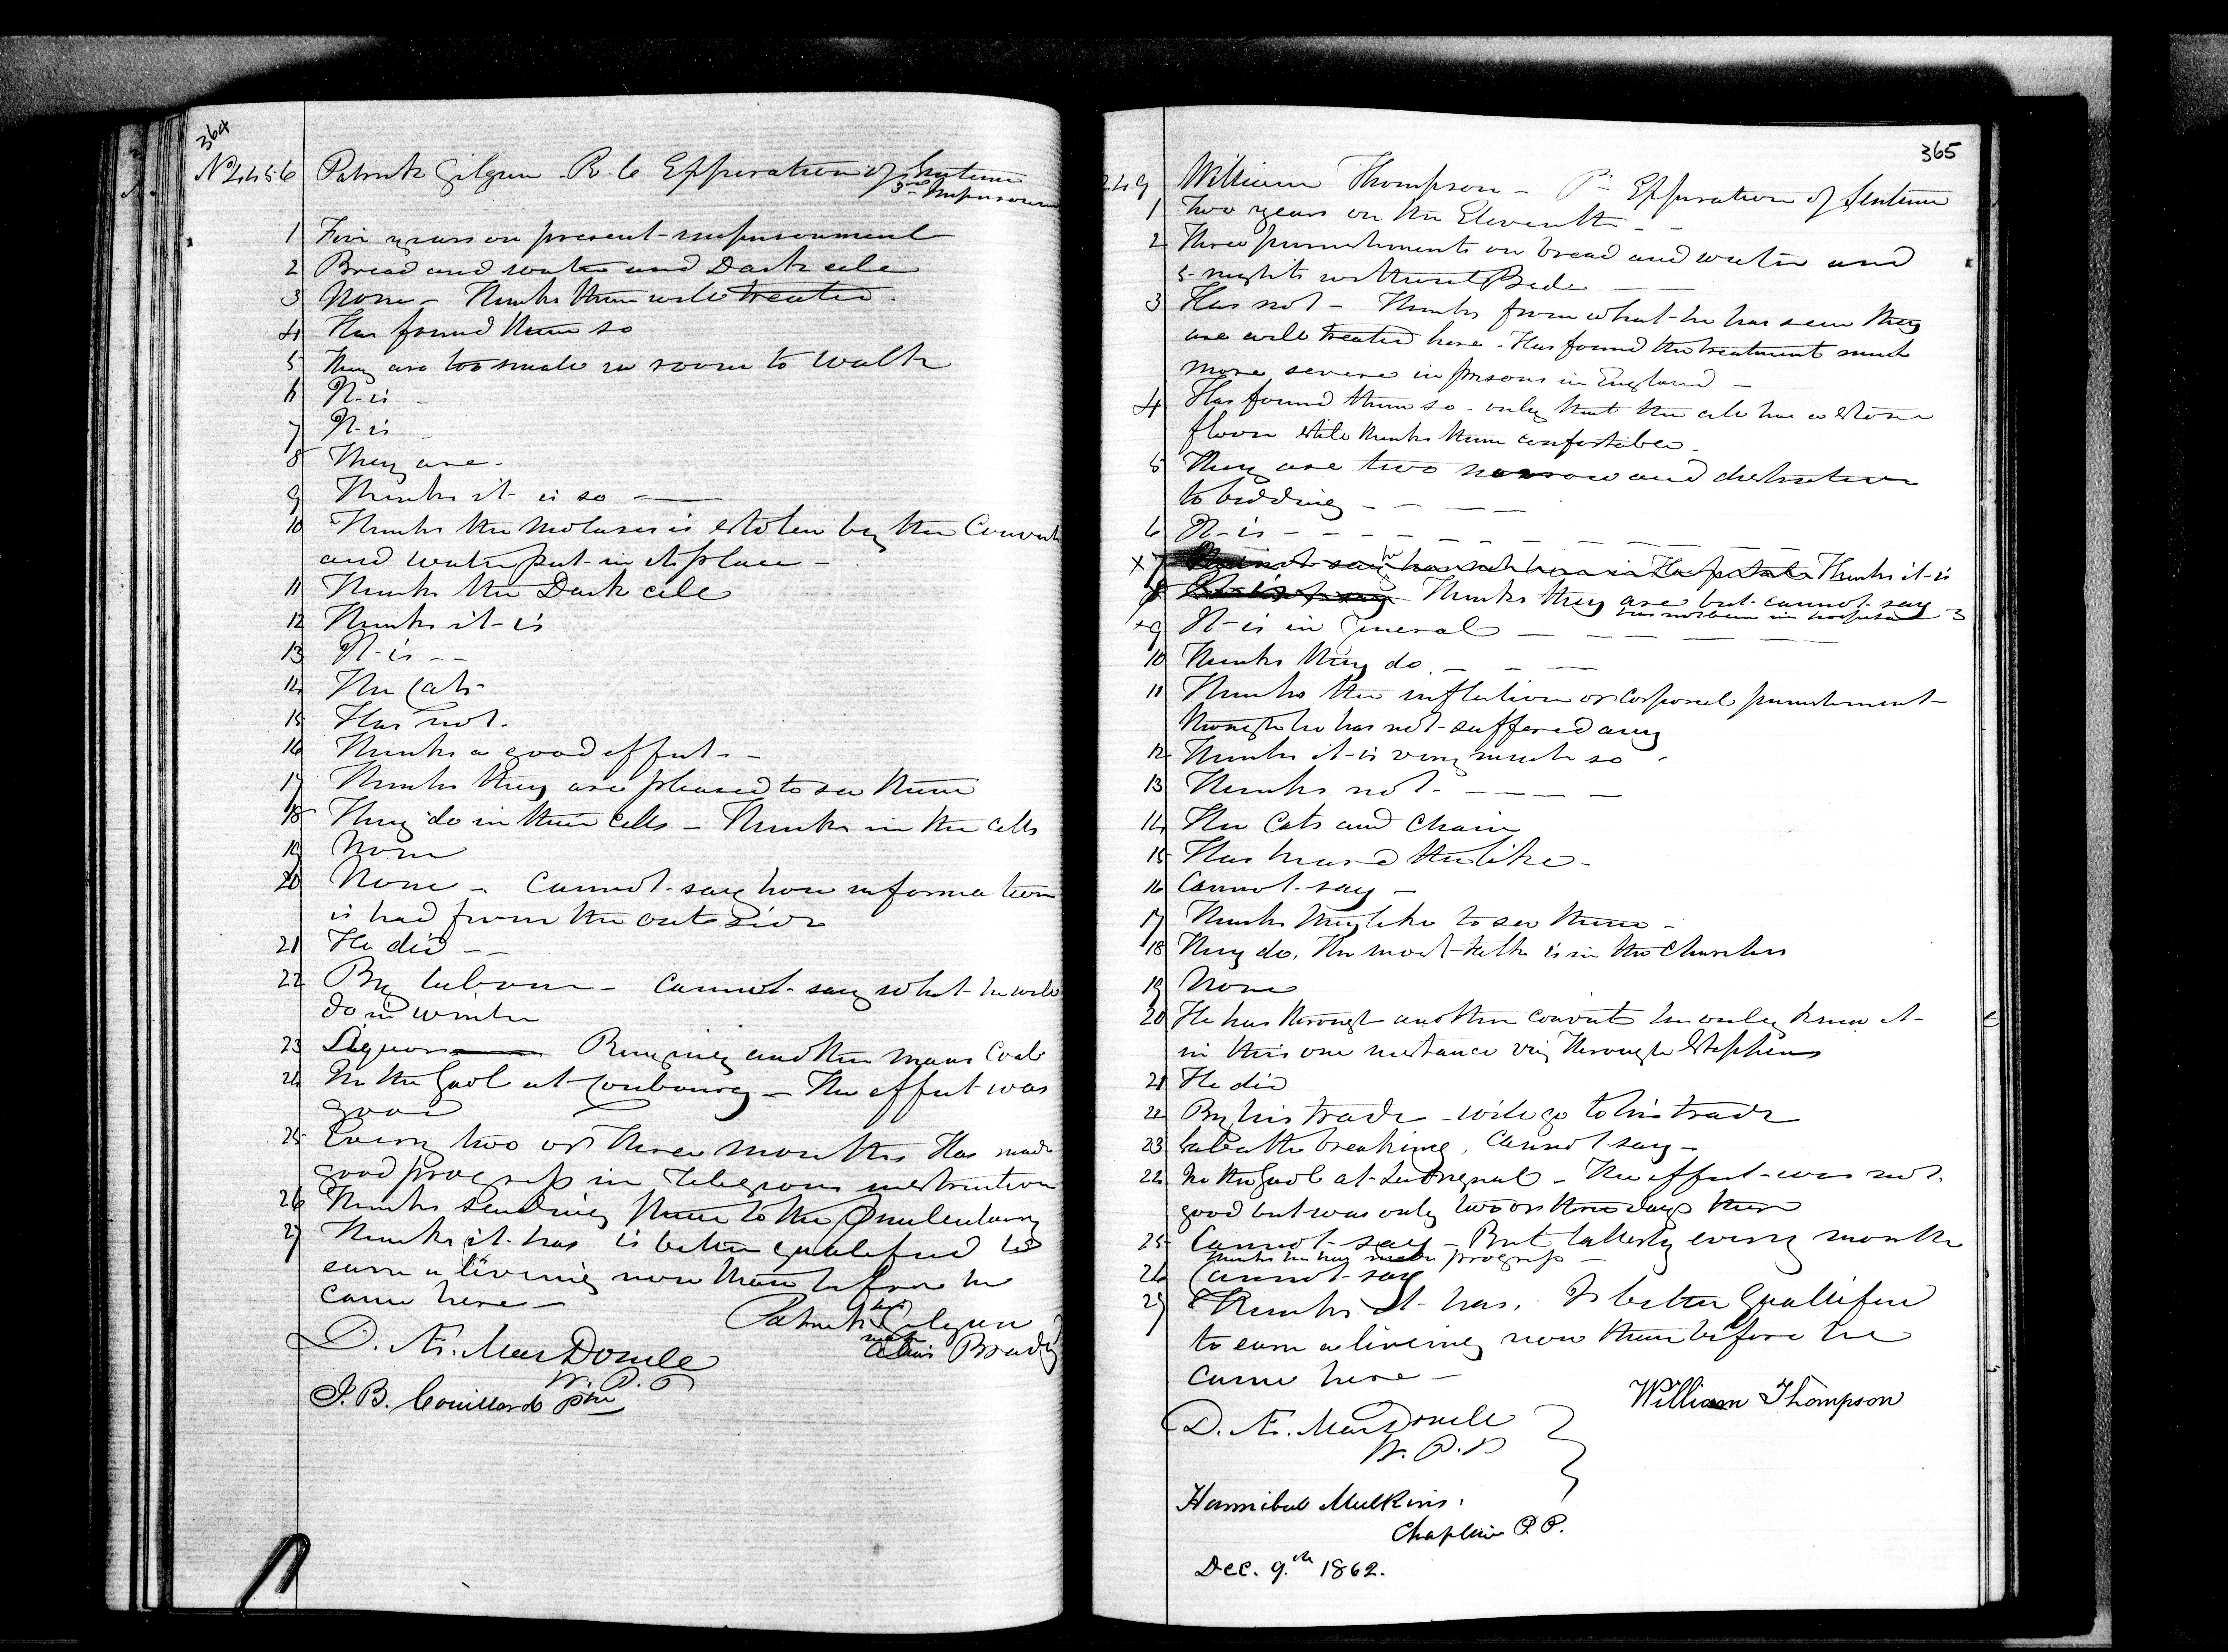 364
No 4456 Patrick Gilgun - R. C Expiration of Sentence
3rd Imprisonm
1 Five years on present imprisonment
2 Bread and water and Dark cell
3 None - Thinks them well treated.
4 Has found them so
5 They are too small no room to walk
6 It is -
7 It is -
8 They are.
9 Thinks it is so ——
10 Thinks the Molasses is stolen by the Convicts
and water put in its place -
11 Thinks the Dark cell
12 Thinks it is
13 It is - -
14 The Cats
15 Has not.
16 Thinks a good effect - -
17 Thinks they are pleased to see them
18 They do in their Cells - Thinks in the Cells
19 None
20 None - Cannot say how information
is had from the outside
21 He did - -
22 By labour - Cannot say what he will
do in winter
23 Liquor Ringing another mans Coat
24 In the Gaol at Cobourg - The effect was
good
25 Every two or three months Has made
good progress in Religious instruction
26 Thinks sending them to the Penitentiary
27 Thinks it has is better qualified to
earn a living now than before he
came here -
Patrick his Gilgun
mark
Brady
D. Æ. MacDonell
W. P. P
J. B. Couillard
365
249 William Thompson - P - Expiration of Sentence
1 Two years on the Eleventh - -
2 Three punishments on bread and water and
5 nights without Bed
3 Has not - Thinks from what he has seen they
are well treated here. Has found the treatment much
more severe in prisons in England -
4 Has found them so - only that the cell has a stone
floor still thinks them comfortable.
5 They are two narrow and destructive
to bedding - - - -
6 It is - - - -
x 7 Cannot say he has not been in Hospital Thinks it is
8 Thinks they are but cannot say
has not been in hospital
x 9 It is in General
10 Thinks they do. - - -
11 Thinks the infliction or Corporal punishment
though he has not suffered any
12 Thinks it is very much so.
13 Thinks not. - - - -
14 The Cats and Chain
15 Has heard the like -
16 Cannot say -
17 Thinks they like to see them -
18 They do. The most talk is in the Chambers
19 None
20 He has through another convict he only knew it
in this one instance viz through Stephens
21 He did
22 By his trade - will go to his trade
23 Sabbath breaking. Cannot say -
24 In the Gaol at L'Orignal - The effect was not
good but was only two or three days there
25 Cannot say - But latterly every month
thinks he has made progress -
26 Cannot say
27 Thinks it has. Is better Quallified
to earn a liveing now than before he
came here -
William Thompson
D. Æ. MacDonell
W. P. P
Hannibal Mulkins.
Chaplain P. P.
Dec. 9th 1862.